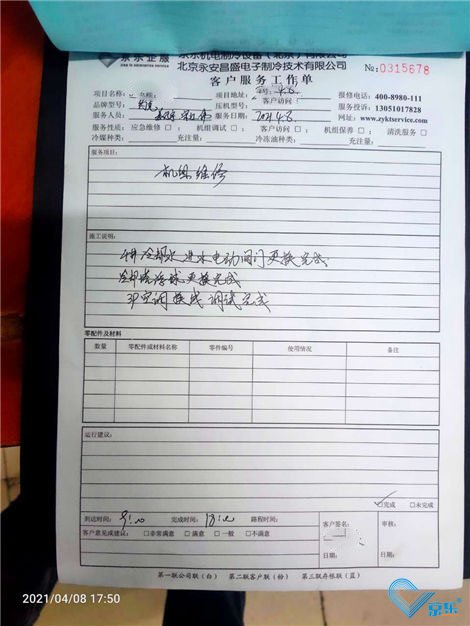 京东企服
京东机电制冷设备（北京）有限公司
北京永安昌盛电子制冷技术有限公司
客户服务工作单
№0315678
项目名称：
项目地址：
报修电话：400-8980-111
品牌型号：
压机型号：
客户访问：
服务投诉：13051017828
服务人员：
服务日期：2021.4.6
网址：www.zyktservice.com
服务性质：应急维修□ 机组调试□ 客户访问□ 机组保养□ 清洗服务□
冷媒种类： 充注量： 冷冻油种类： 充注量：
服务项目：
机组维修
施工说明：
冷却水进水电动阀门更换完成
冷却塔浮球更换完成
3P空调接线调试完成
零配件及材料
数量 零配件或材料名称 零件编号 使用情况 备注
运行建议：
☑完成 □未完成
到达时间： 完成时间： 路程时间：
客户签名：
审核：
客户意见或建议：□非常满意 □满意 □一般 □不满意
日期： 日期：
第一联公司联（白） 第二联客户联（粉） 第三联存根联（蓝）
2021/04/08 17:50
京东